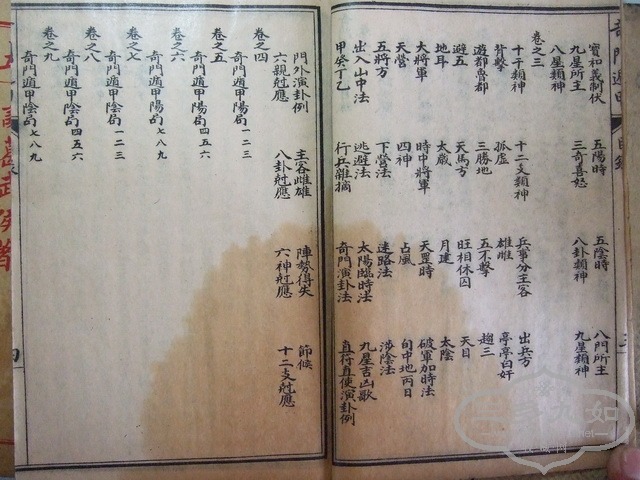 奇門遁甲 目錄
寶和義制伏 五陽時 五陰時 八門所主
九星所主 三奇喜怒 八卦類神 九星類神
八星類神
卷之三
十干類神 十二支類神 兵事分主客 出兵方
背擊 孤虛 雄雌 亭亭白奸
遊都魯都 三勝地 五不擊 趨三
避五 天馬方 旺相休囚 天目
地耳 太歲 月建 太陰
大將軍 時中將軍 天罡時 破軍加時法
天營 四神 占風 旬中地丙日
五將方 下營法 迷路法 涉陰法
出入山中法 逃避法 太陽臨時法 九星吉凶歌
甲癸丁乙 行兵雜摘 奇門演卦法 直符直使演卦例
門外演卦例 主客雌雄 陣勢得失 節候
六親尅應 八卦尅應 六神尅應 十二支尅應
卷之四
奇門遁甲陽局 一二三
卷之五
奇門遁甲陽局 四五六
卷之六
奇門遁甲陽局 七八九
卷之七
奇門遁甲陰局 一二三
卷之八
奇門遁甲陰局 四五六
卷之九
奇門遁甲陰局 七八九